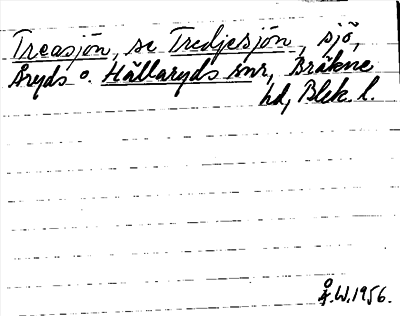 Treasjön, se Tredjesjön, sjö,
Åryds o. Hällaryds snr, Bräkne
hd, Blek. l.
Å.W. 1956.